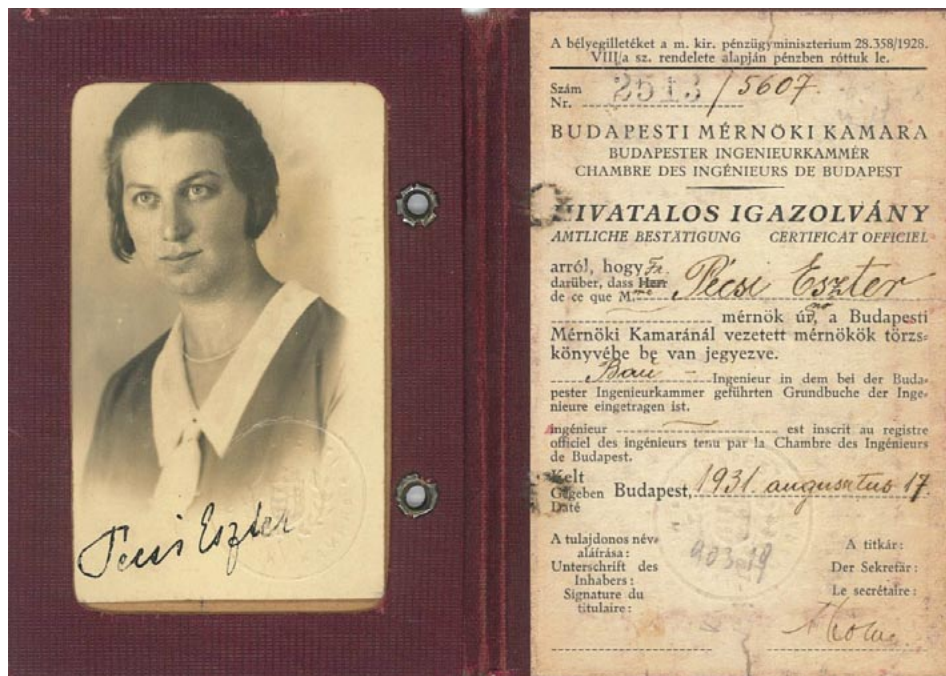 Pécsi Eszter
A bélyegilletéket a m. kir. pénzügyminiszterium 28.358/1928.
VIII/a sz. rendelete alapján pénzben róttuk le.
Szám
Nr. 2513/5607.
BUDAPESTI MÉRNÖKI KAMARA
BUDAPESTER INGENIEURKAMMER
CHAMBRE DES INGÉNIEURS DE BUDAPEST
HIVATALOS IGAZOLVÁNY
AMTLICHE BESTÄTIGUNG CERTIFICAT OFFICIEL
arról, hogy Fr.
darüber, dass Herr
de ce que M. me Pécsi Eszter
mérnök úr, a Budapesti
Mérnöki Kamaránál vezetett mérnökök törzs-
könyvébe be van jegyezve.
Bau - Ingenieur in dem bei der Buda-
pester Ingenieurkammer geführten Grundbuche der Inge-
nieure eingetragen ist.
ingénieur est inscrit au registre
officiel des ingénieurs tenu par la Chambre des Ingénieurs
de Budapest.
Kelt
Gegeben Budapest, 1931. augusztus 17.
Daté
A tulajdonos név-
aláírása:
Unterschrift des
Inhabers:
Signature du
titulaire:
903-19
A titkár:
Der Sekretär:
Le secrétaire: